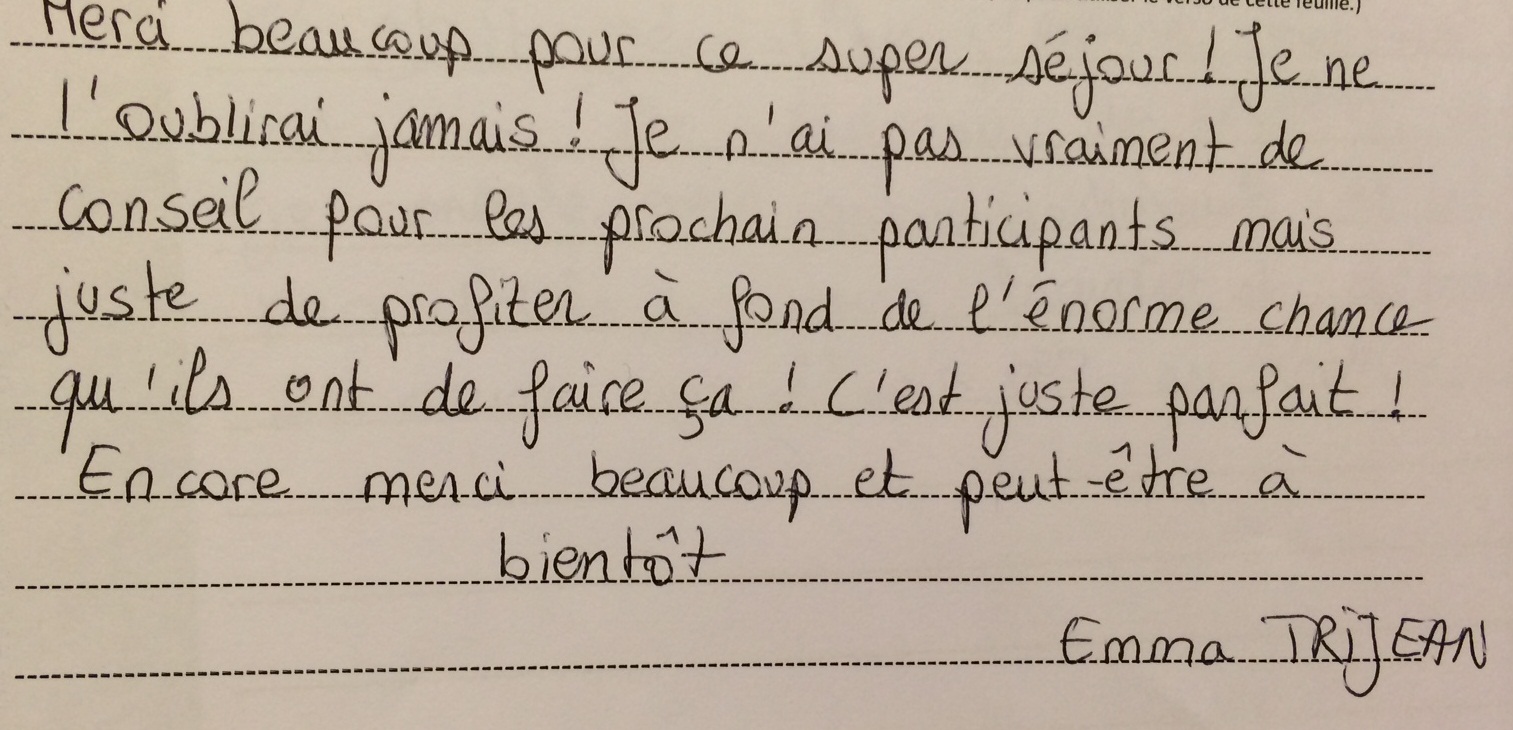 le verso de cette feuille.)
Merci beaucoup pour ce super séjour ! Je ne
l'oublirai jamais ! Je n'ai pas vraiment de
conseil pour les prochain participants mais
juste de profiter à fond de l'énorme chance
qu'ils ont de faire ça ! C'est juste parfait !
Encore merci beaucoup et peut-être à
bientôt
Emma TRIJEAN